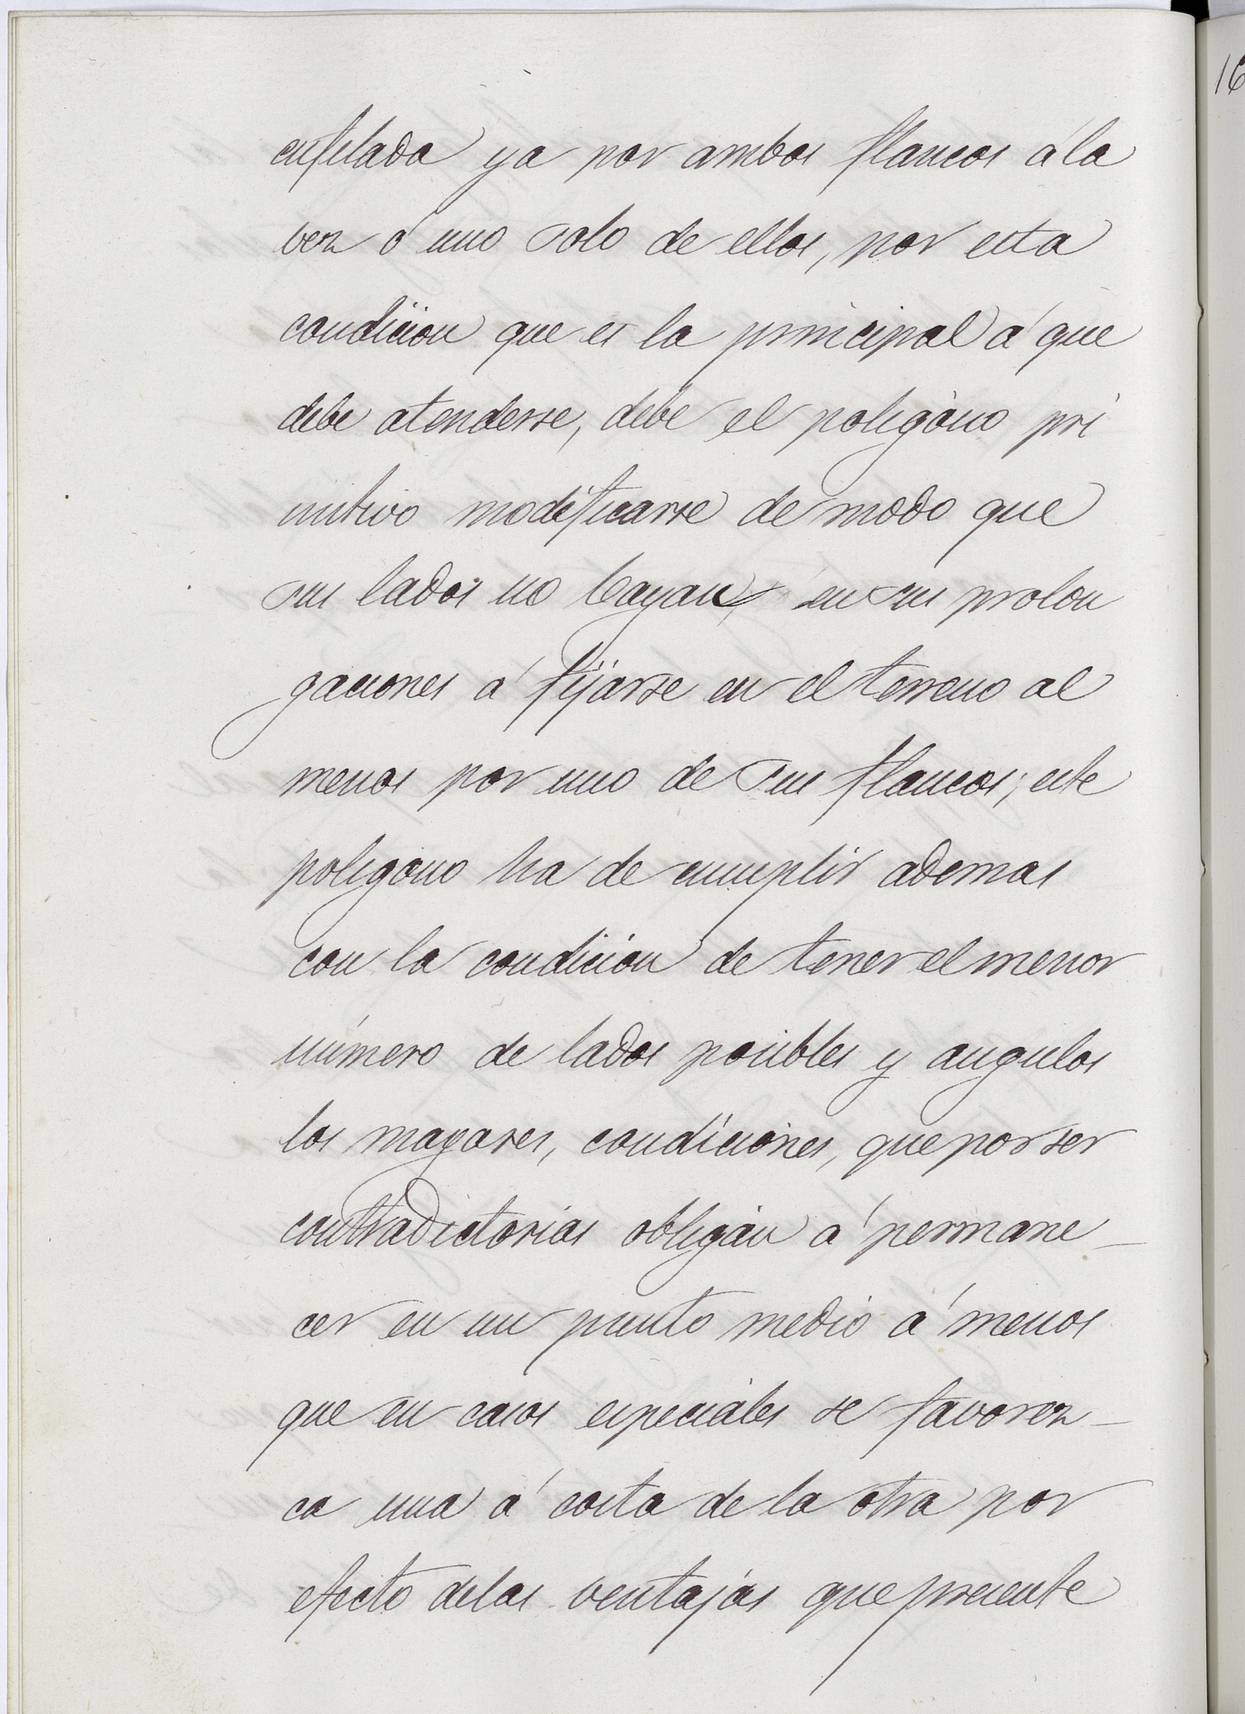 enfilada ya por ambos flancos á la
vez ó uno solo de ellos, por esta
condicion que es la principal á que
debe atenderse, debe el poligono pri
mitivo modificarse de modo que
sus lados no bayan, en sus prolon
gaciones á fijarse en el terreno al
menos por uno de sus flancos; este
poligono ha de cumplir ademas
con la condicion de tener el menor
número de lados posibles y angulos
los mayores, condiciones, que por ser
contradictorias obligan á permane_
cer en un punto medio á menos
que en casos especiales se favorez_
ca una á costa de la otra por
efecto de las ventajas que presente
16